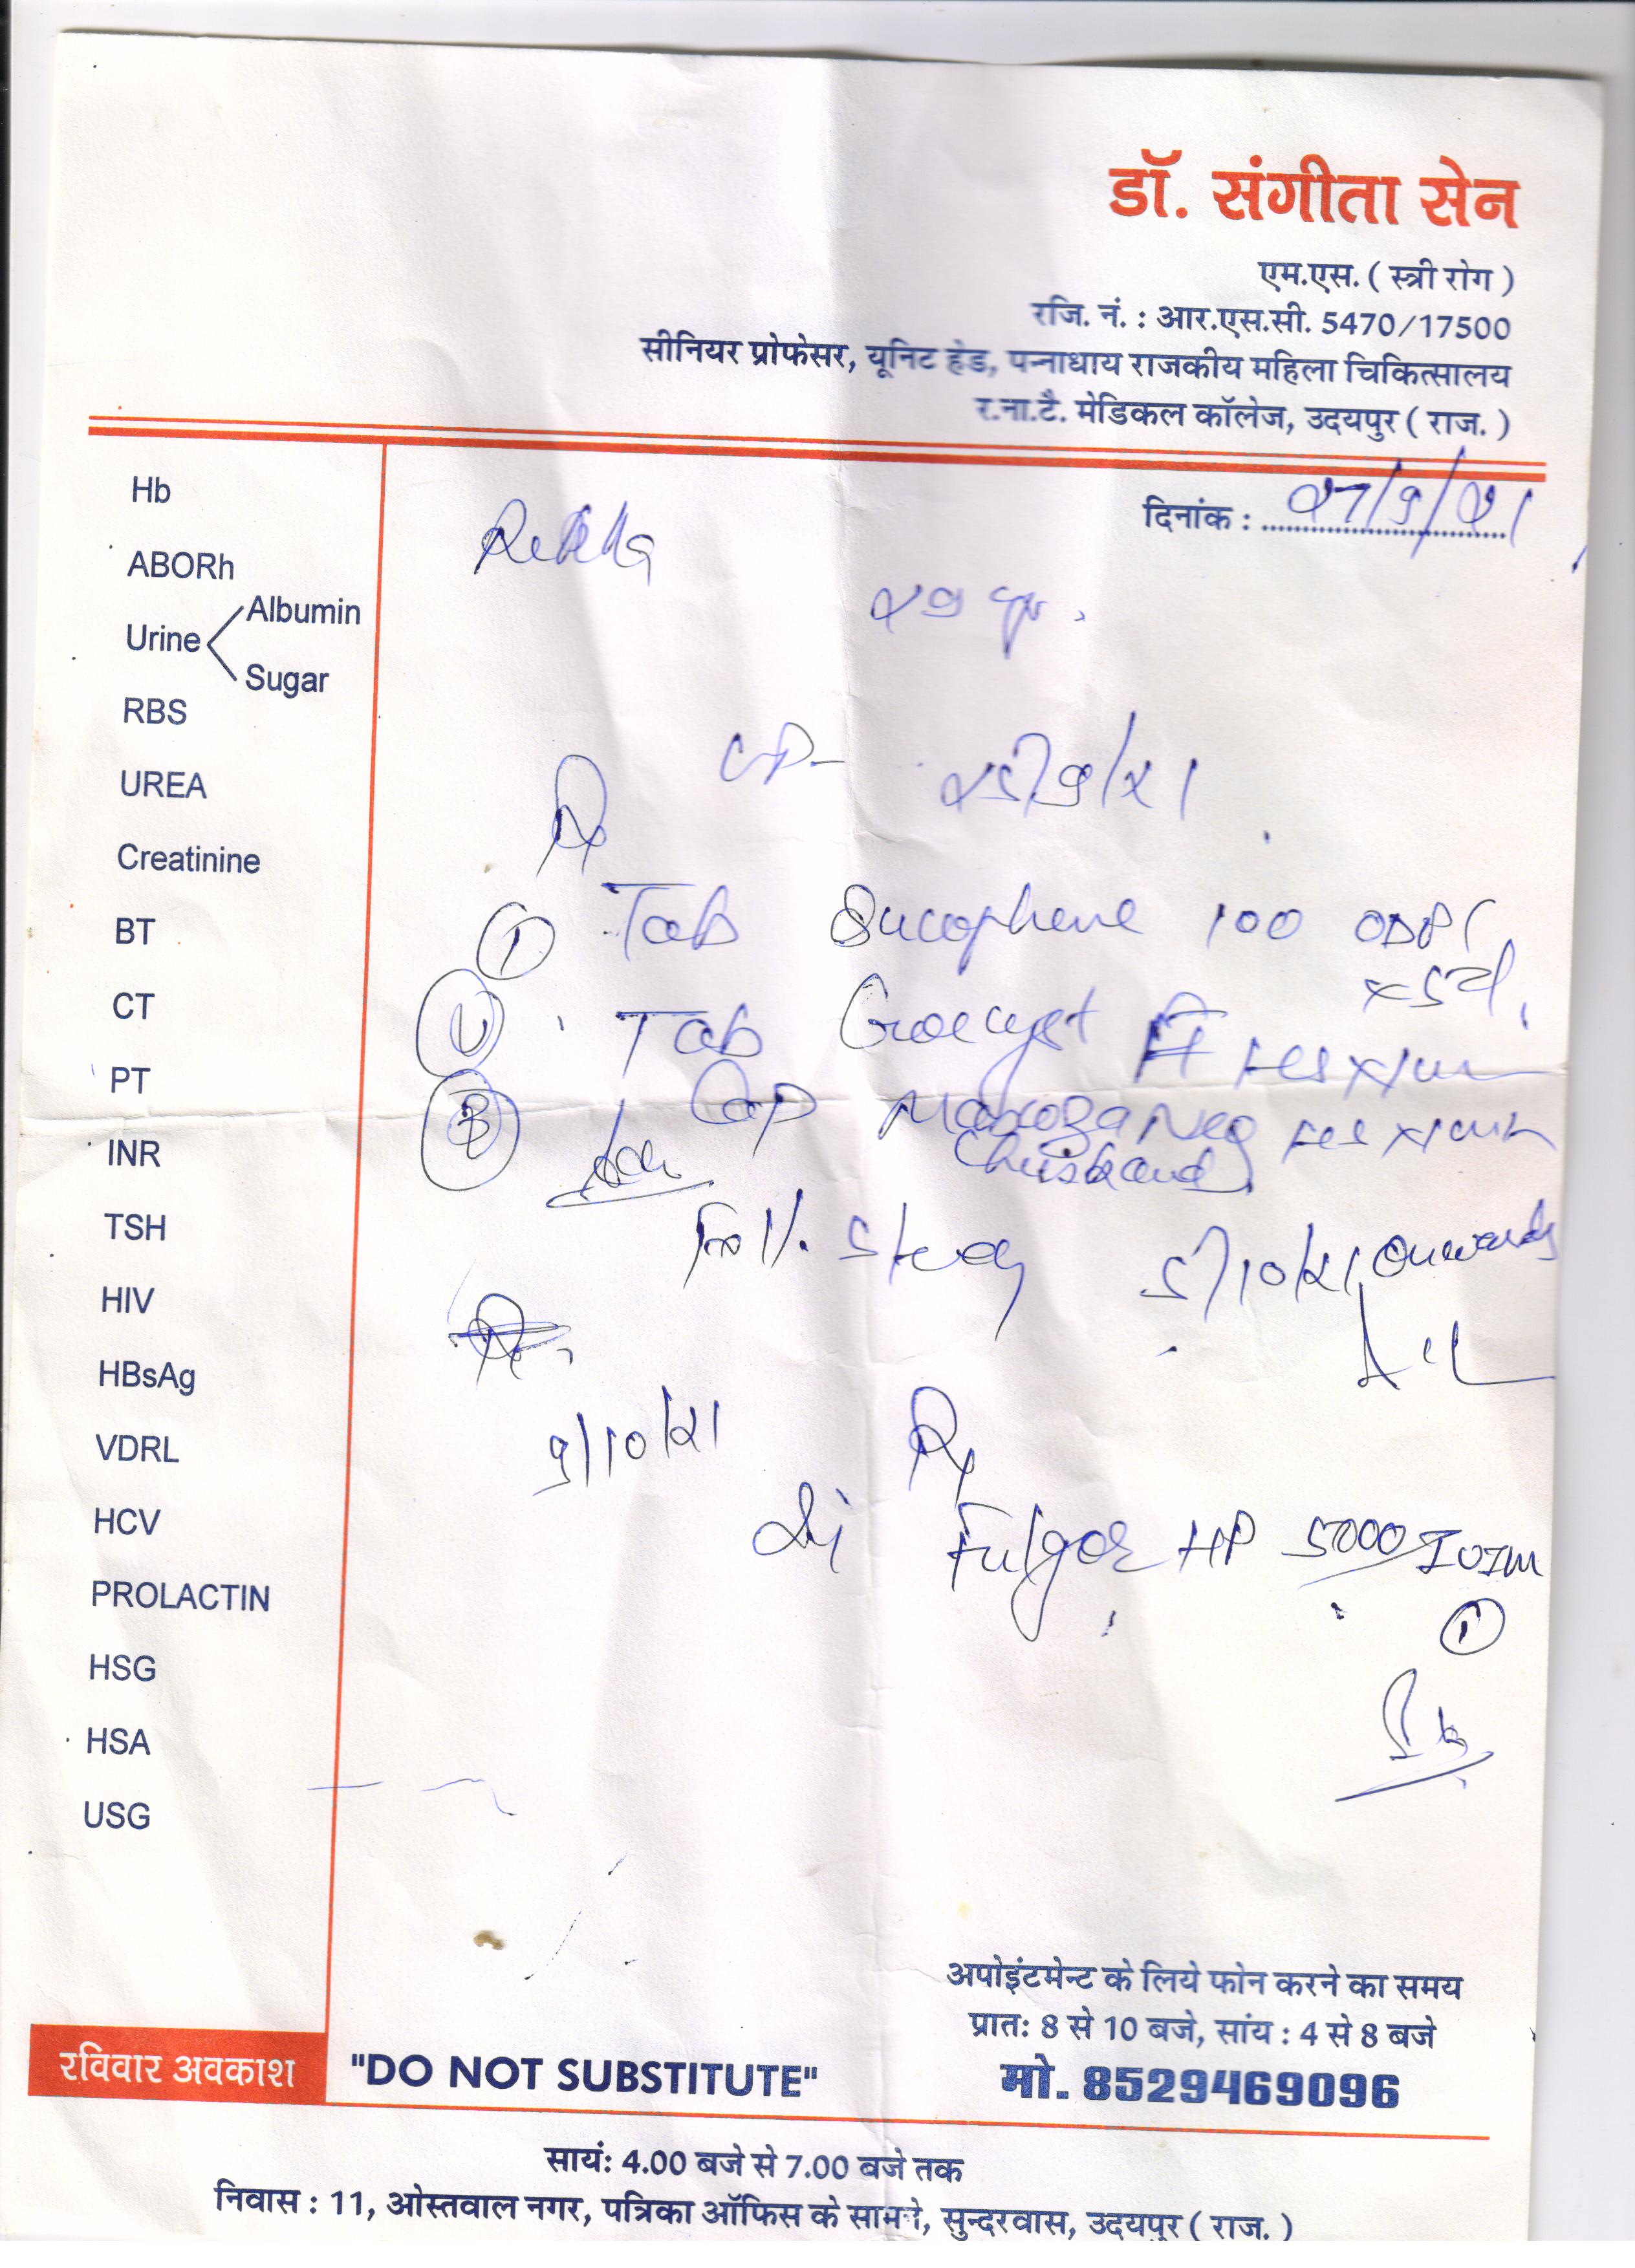 डॉ. संगीता सेन
एम.एस. ( स्त्री रोग )
रजि. नं. : आर.एस.सी. 5470/17500
सीनियर प्रोफेसर, यूनिट हेड, पन्नाधाय राजकीय महिला चिकित्सालय
र.ना.टै. मेडिकल कॉलेज, उदयपुर ( राज. )
दिनांक : 27/9/21
Rekha
29 yr.
25/9/21
Rx
① Tab 100 OD
Tab
③ Cap Neo
(husband)
Foll. Study 5/10/21 onwards
9/10/21 Rx
Inj Fulgor HP 5000 IU IM
①
Hb
ABORh
Urine
Albumin
Sugar
RBS
UREA
Creatinine
BT
CT
PT
INR
TSH
HIV
HBsAg
VDRL
HCV
PROLACTIN
HSG
HSA
USG
अपोइंटमेन्ट के लिये फोन करने का समय
प्रात: 8 से 10 बजे, सांय : 4 से 8 बजे
मो. 8529469096
रविवार अवकाश
"DO NOT SUBSTITUTE"
सायं: 4.00 बजे से 7.00 बजे तक
निवास : 11, ओस्तवाल नगर, पत्रिका ऑफिस के सामने, सुन्दरवास, उदयपुर ( राज. )